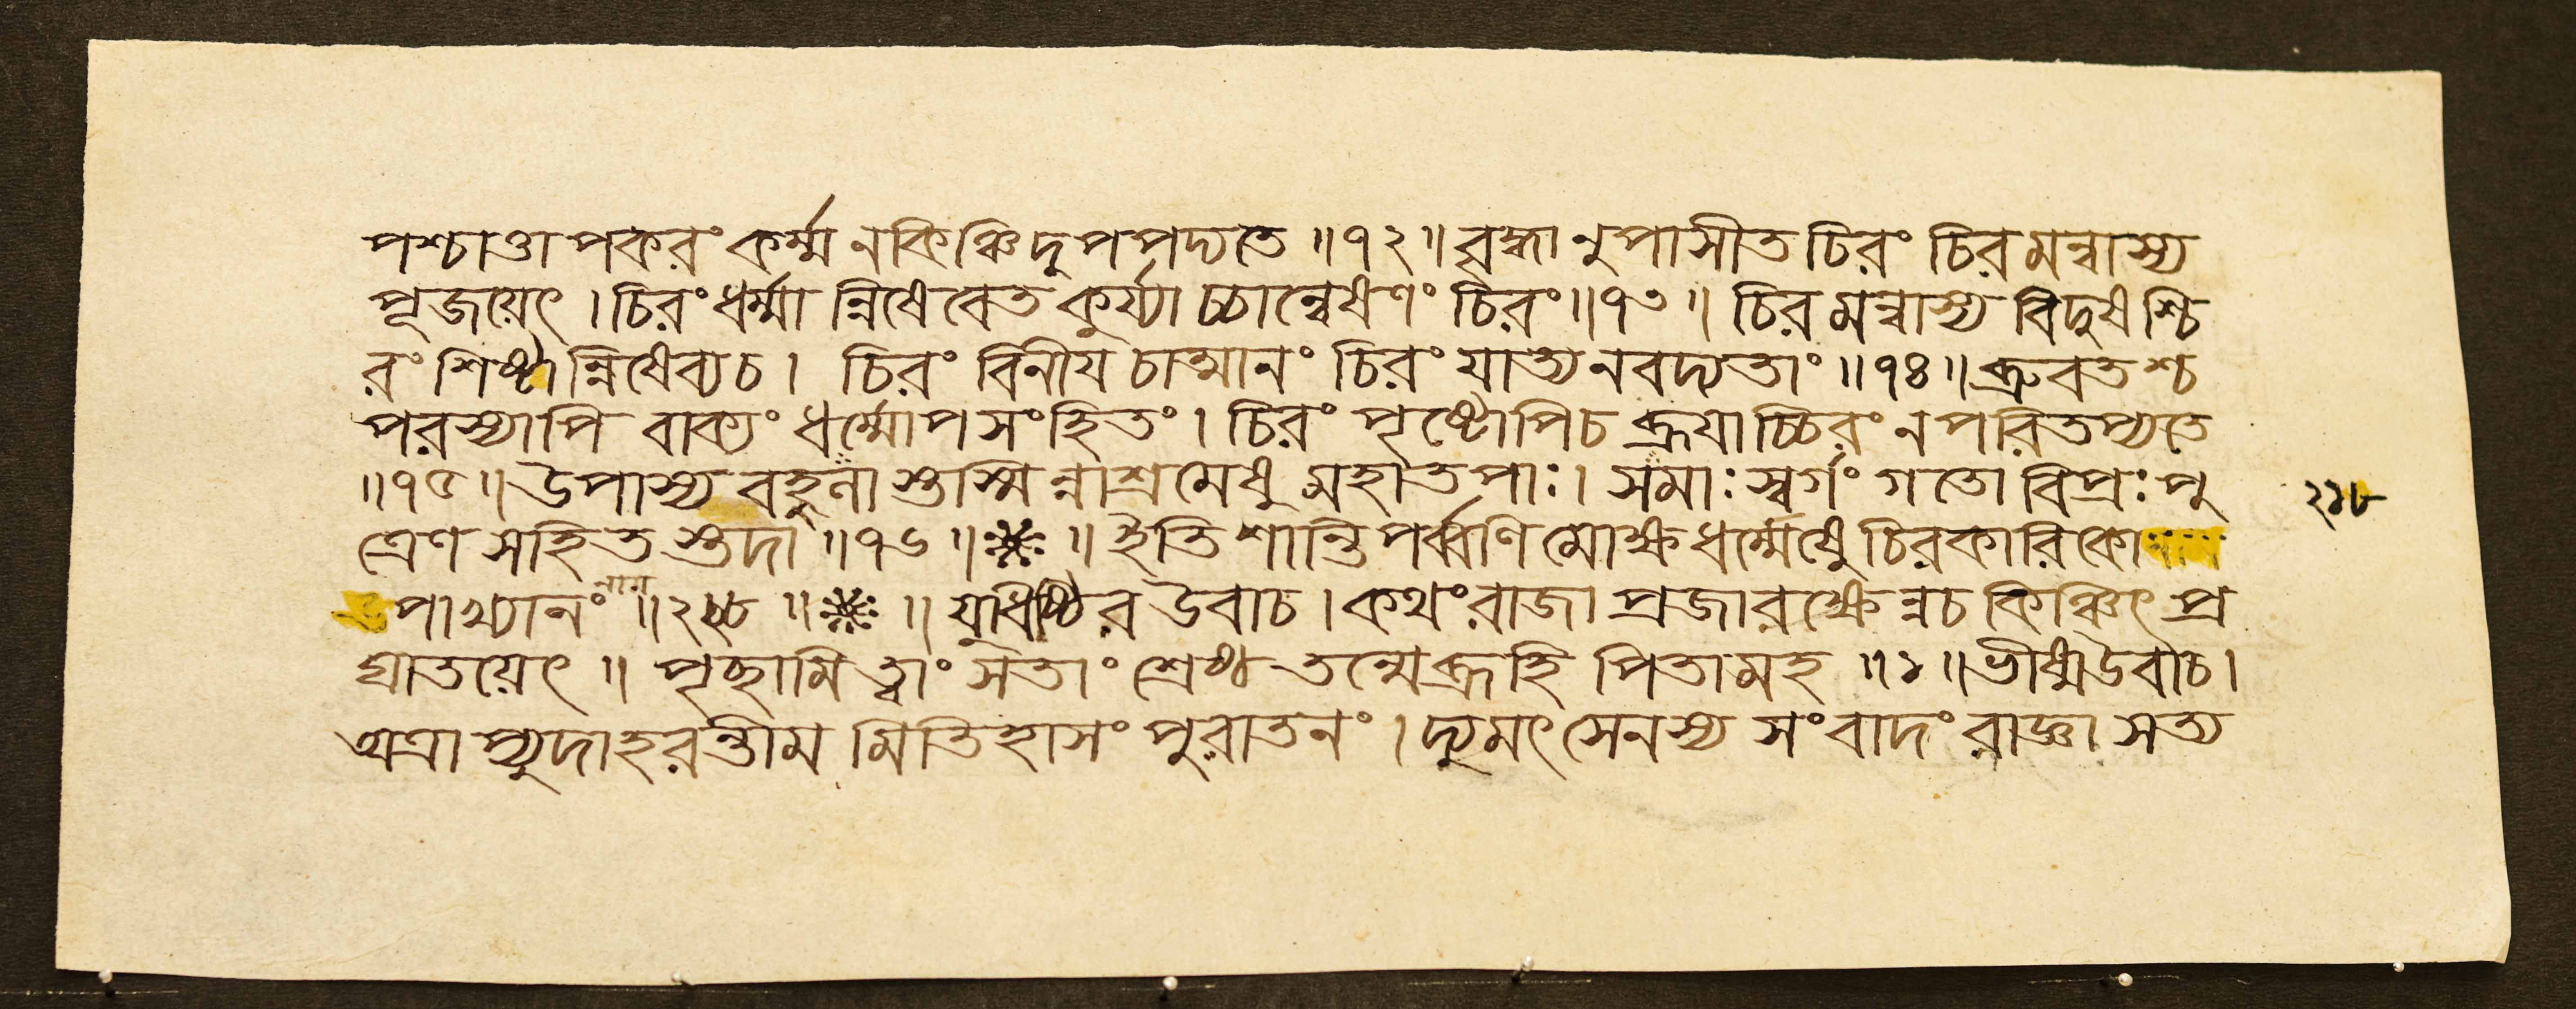 পশ্চাত্তাপকরং কর্ম্ম নকিঞ্চিদুপপদ্যতে ॥৭২॥ বৃদ্ধানুপাসীত চিরং চিরমন্বাস্য
পূজয়েৎ । চিরং ধর্ম্মান্নিষেবেত কুর্য্যাচ্চান্বেষণং চিরং ॥৭৩॥ চিরমন্বাস্য বিদুষশ্চি
রং শিষ্টান্নিষেব্যচ । চিরং বিনীয চাত্মানং চিরং যাত্যনবদ্যতাং ॥৭৪॥ ব্রুবতশ্চ
পরস্যাপি বাক্যং ধর্ম্মোপসংহিতং । চিরং পৃষ্টোপিচ ব্রূযাচ্চিরং ন পরিতপ্যতে
॥৭৫॥ উপাস্য বহুনাস্তস্মিন্নাশ্রমেষু মহাতপাঃ । সমাঃ স্বর্গং গতো বিপ্রঃ পু
ত্রেণ সহিতস্তদা ॥৭৬॥ ॥ ইতি শান্তিপর্ব্বণি মোক্ষধর্ম্মেষু চিরকারিকো
পাখ্যানং নাম ॥ ॥ যুধিষ্ঠির উবাচ । কথং রাজা প্রজা রক্ষেন্নচ কিঞ্চিৎ প্র
ঘাতয়েৎ ॥ পৃচ্ছামি ত্বাং সতাং শ্রেষ্ঠ তন্মে ব্রূহি পিতামহ ॥১॥ ভীষ্ম উবাচ ।
অত্রাপ্যুদাহরন্তীমমিতিহাসং পুরাতনং । দ্যুমৎসেনস্য সংবাদং রাজ্ঞা সত্য
২১৮